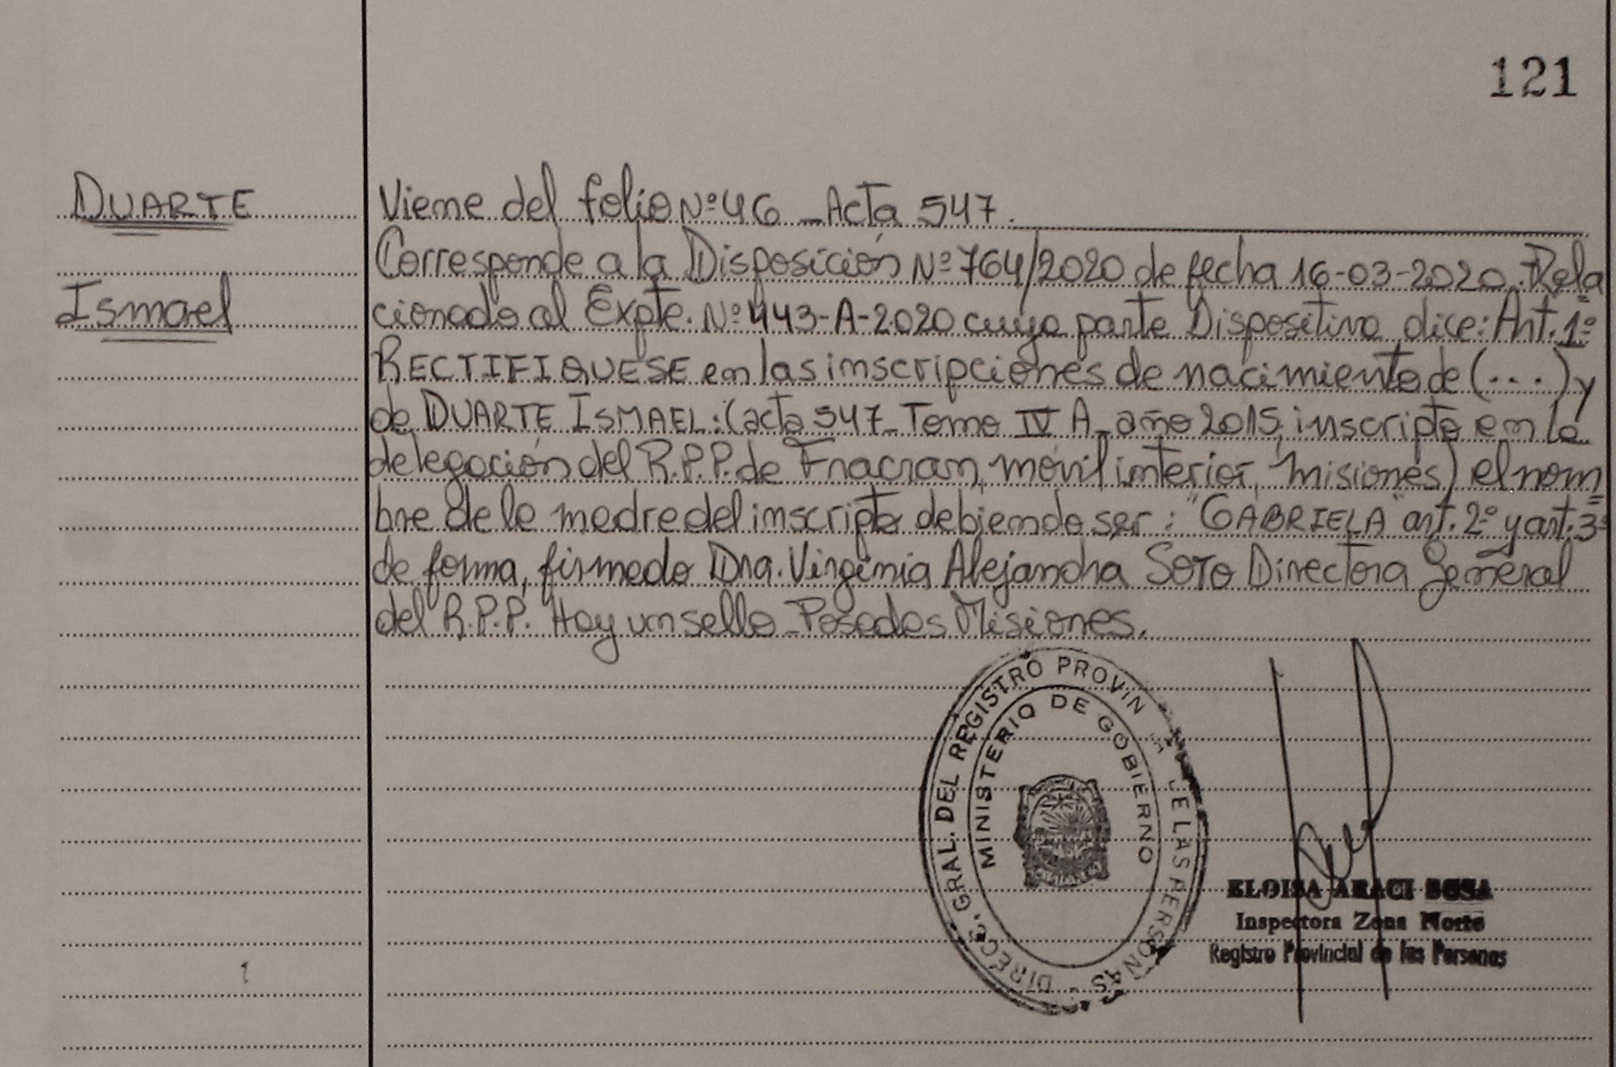 121
DUARTE
Ismael
Viene del folio Nº 46 _ Acta 547.
Corresponde a la Disposición Nº 764/2020 de fecha 16-03-2020. Rela
cionado al Expte. Nº 443-A-2020 cuya parte Dispositiva dice: Art. 1º
RECTIFIQUESE en las inscripciones de nacimiento de (...) y
de DUARTE ISMAEL: (acta 547_ Tomo IV A_ año 2015, inscripto en la
delegación del R.P.P. de Fracran, móvil interior, Misiones) el nom=
bre de la madre del inscripto debiendo ser: "GABRIELA" art. 2º y art. 3º
de forma, firmado Dra. Virginia Alejandra SOTO Directora General
del R.P.P. Hay un sello _ Posadas Misiones.
DIRECC. GRAL. DEL REGISTRO PROVIN DE LAS PERSONAS
MINISTERIO DE GOBIERNO
ELOISA ARACI SOSA
Inspectora Zona Norte
Registro Provincial de las Personas